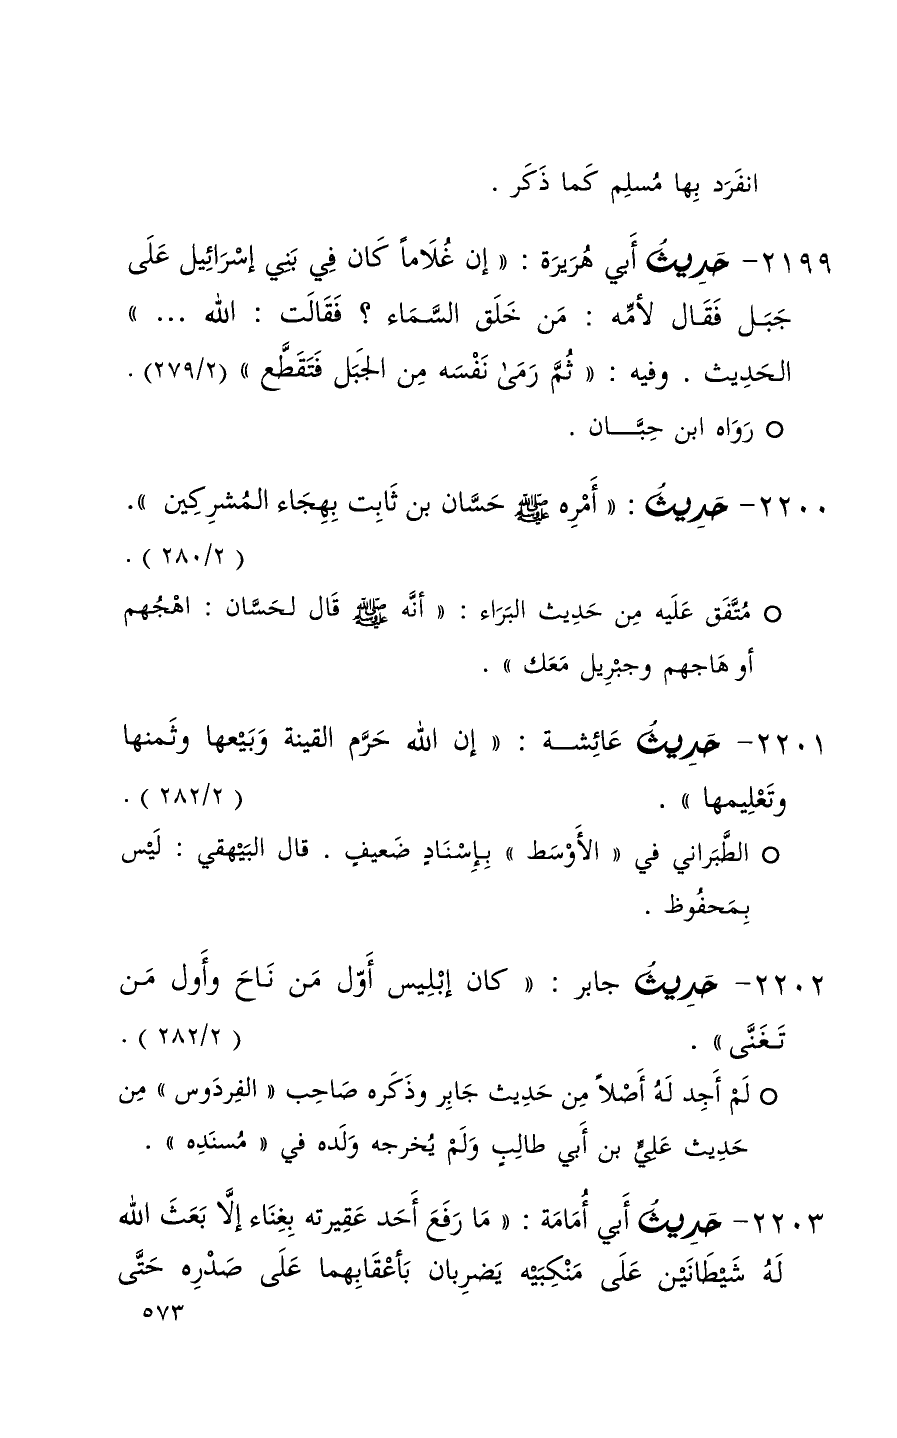 انفَرَد بِها مُسلِم كَما ذَكَر .
٢١٩٩- حَدِيثُ أَبي هُرَيرَة : « إن غُلَاماً كَان فِي بَنِي إسْرَائِيل عَلَى
جَبَـل فَقَـال لأمِّه : مَن خَلَق السَّـمَاء ؟ فَقَالَت : الله ... »
الـحَدِيث . وفيه : « ثُمَّ رَمَىٰ نَفْسَه مِن الجَبَل فَتَقَطَّع » (٢٧٩/٢) .
○ رَوَاه ابن حِبَّـــان .
٢٢٠٠- حَدِيثُ : « أَمْرِه ﷺ حَسَّان بن ثَابِت بِهِجَاء الـمُشرِكِين ».
( ٢٨٠/٢ ) .
○ مُتَّفَق عَلَيه مِن حَدِيث البَرَاء : « أنَّه ﷺ قَال لـحَسَّان : اهْجُهم
أو هَاجهم وجبْرِيل مَعَك » .
٢٢٠١- حَدِيثُ عَائِشـــة : « إن الله حَرَّم القينة وَبَيْعها وثَمنها
وتَعْلِيمها » . ( ٢٨٢/٢ ) .
○ الطَّبَراني في « الأَوْسَط » بِـإِسْنَادٍ ضَعيفٍ . قال البَيْهقي : لَيْس
بِـمَحفُوظ .
٢٢٠٢- حَدِيثُ جابر : « كان إبْلِيس أَوّل مَن نَـاحَ وأَول مَـن
تَـغَنَّى » . ( ٢٨٢/٢ ) .
○ لَمْ أَجِد لَهُ أَصْلاً مِن حَدِيث جَابِر وذَكَره صَاحِب « الفِردَوس » مِن
حَدِيث عَلِيِّ بن أَبي طالِبٍ وَلَمْ يُخرجه وَلَده في « مُسنَدِه » .
٢٢٠٣- حَدِيثُ أَبي أُمَامَة : « مَا رَفَعَ أَحَد عَقِيرته بِغِنَاء إلَّا بَعَثَ الله
لَهُ شَيْطَانَيْن عَلَى مَنْكِبَيْه يَضرِبان بَأعْقَابِهما عَلَى صَدْرِه حَتَّى
٥٧٣